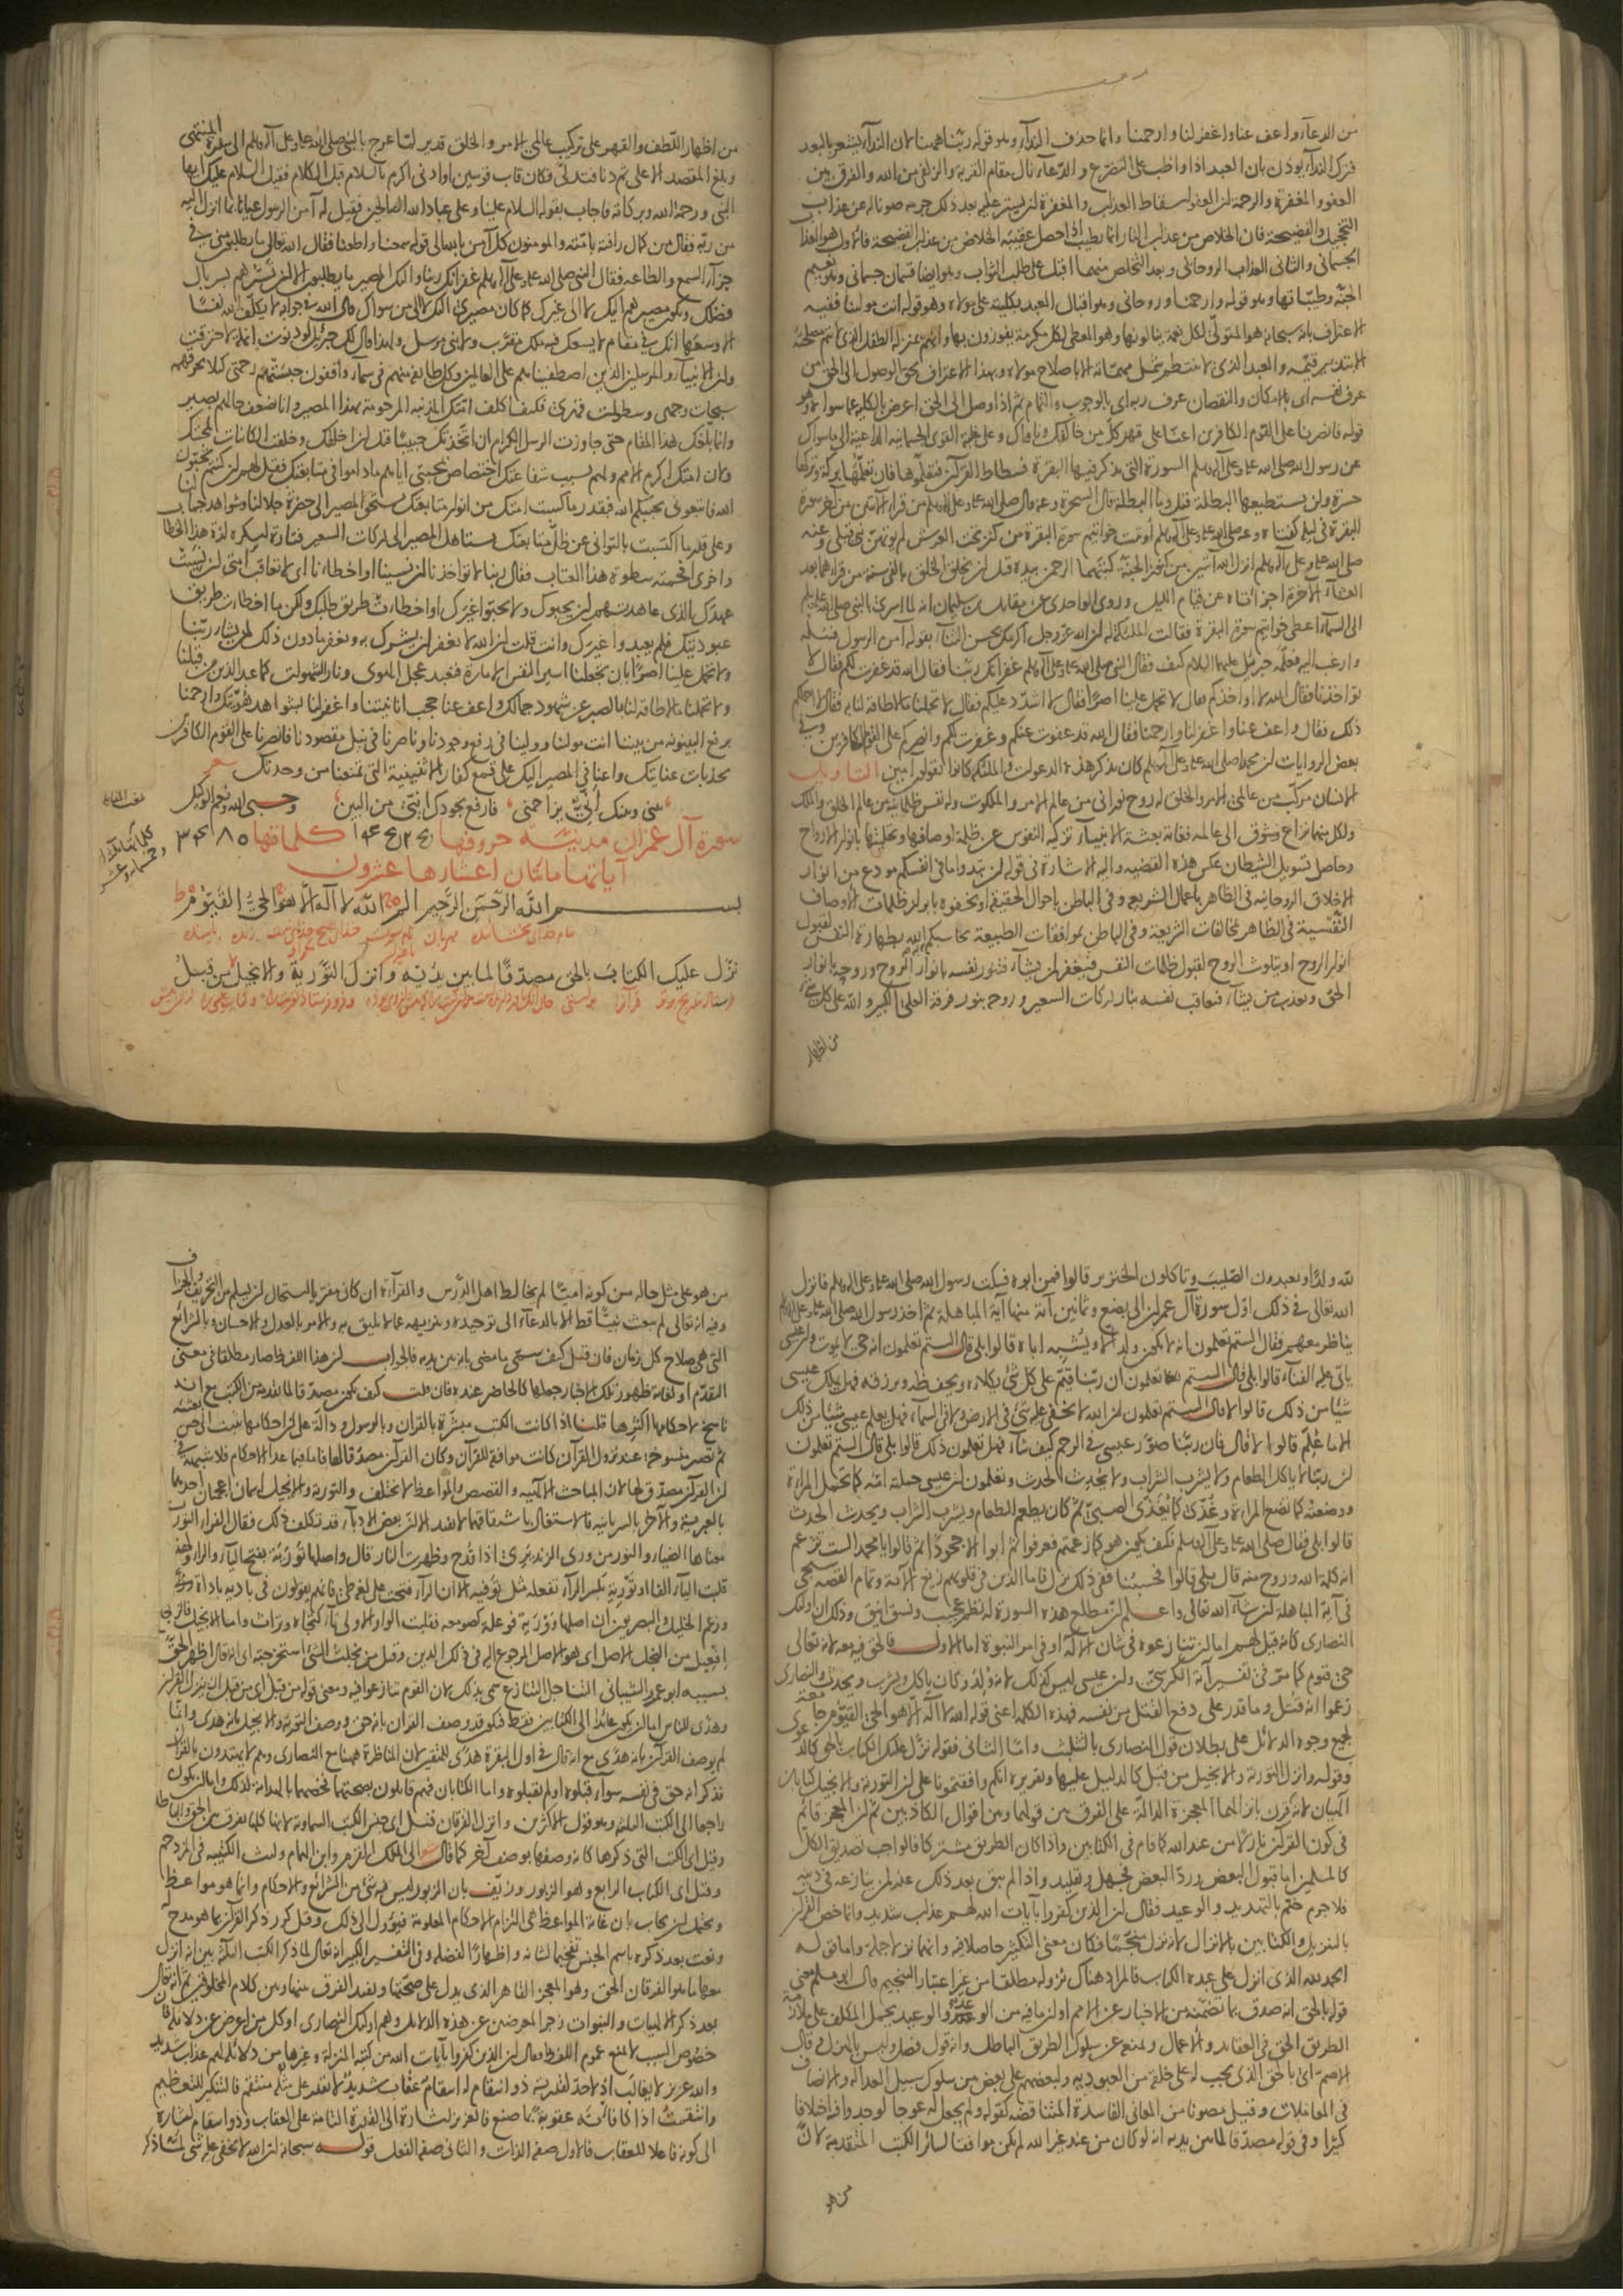 من الدعاء واعف عنا واغفر لنا وارحمنا وانما حذف النداء وهو قوله ربنا ههنا لان النداء يشعر بالبعد
فترك النداء يوذن بان العبد اذا واظب على التضرع والدعاء نال مقام القربة والزلفى من الله والفرق بين
العفو والمغفرة والرحمة ان العفو اسقاط العذاب والمغفرة ان يستر عليه بعد ذلك جرمه صونا له عن عذاب
التخجيل والفضيحة فان الخلاص من عذاب النار انما يطيب اذا حصل عقيبه الخلاص من عذاب الفضيحة فالاول هو العذاب
الجسمانى والثانى العذاب الروحانى وبعد التخلص منهما اقبل على طلب الثواب وهو ايضا قسمان جسمانى وهو نعيم
الجنة وطيباتها وهو قوله وارحمنا وروحانى وهو اقبال العبد بكليته على مولاه وهو قوله انت مولنا ففيه
الاعتراف بانه سبحانه هو المتولى لكل نعمة ينالونها وهو المعطى لكل مكرمة يفوزون بها وانهم بمنزلة الطفل الذى لا تتم مصلحته
الا بتدبير قيمه والعبد الذى لا ينتظم شمل مهماته الا باصلاح مولاه وبهذا الاعتراف يحق الوصول الى الحق من
عرف نفسه اى بالامكان والنقصان عرف ربه اى بالوجوب والتمام ثم اذا وصل الى الحق اعرض بالكلية عما سواه وهو
قوله فانصرنا على القوم الكافرين اعنا على قهر كل من خالفك وناواك وعلى غلبة القوى الجسمانية الداعية الى ما سواك
عن رسول الله صلى الله عليه وعلى آله وسلم السورة التى يذكر فيها البقرة فسطاط القرآن فتعلموها فان تعلمها بركة وتركها
حسرة ولن يستطيعها البطلة قيل وما البطلة قال السحرة وعنه قال صلى الله عليه وعلى آله وسلم من قرأ الآيتين من آخر سورة
البقرة فى ليلة كفتاه وعنه صلى الله عليه وعلى آله وسلم اوتيت خواتيم سورة البقرة من كنز تحت العرش لم يوتهن نبى قبلى وعنه
صلى الله عليه وعلى آله وسلم انزل الله آيتين من كنوز الجنة كتبهما الرحمن بيده قبل ان يخلق الخلق بالفى سنة من قراهما بعد
العشاء الآخرة اجزاتاه عن قيام الليل وروى الواحدى عن مقاتل بن سليمان انه لما اسرى بالنبى صلى الله عليه وسلم
الى السماء اعطى خواتيم سورة البقرة فقالت الملائكة له ان الله عز وجل اكرمك بحسن الثناء بقوله آمن الرسول فسله
وارغب اليه فعلمه جبرئيل عليهما السلام كيف فقال النبى صلى الله عليه وعلى آله وسلم غفرانك ربنا فقال الله قد غفرت لكم فقال لا
تواخذنا فقال الله لا اواخذكم فقال لا تحمل علينا اصرا فقال لا اشدد عليكم فقال لا تحملنا ما لا طاقة لنا به فقال لا احملكم
ذلك فقال واعف عنا واغفر لنا وارحمنا فقال الله قد عفوت عنكم وغفرت لكم وانصركم على القوم الكافرين وفى
بعض الروايات ان محمدا صلى الله عليه وعلى آله وسلم كان يذكر هذه الدعوات والملائكة كانوا يقولون آمين التاويل
الانسان مركب من عالمى الامر والخلق له روح نورانى من عالم الامر والملكوت وله نفس ظلمانية من عالم الخلق والملك
ولكل منهما نزاع وشوق الى عالمه فغاية بعثة الانبياء تزكية النفوس عن ظلمة اوصافها وتحليتها بانوار الارواح
وحاصل تسويل الشيطان عكس هذه القضية واليه الاشارة فى قوله ان تبدوا ما فى انفسكم مودع من انوار
الاخلاق الروحانية فى الظاهر باعمال الشريعة وفى الباطن باحوال الحقيقة او تخفوه بابراز ظلمات الاوصاف
النفسية فى الظاهر بمخالفات الشريعة وفى الباطن بموافقات الطبيعة يحاسبكم به الله بطهارة النفس لقبول
انوار الروح او بتلوث الروح لقبول ظلمات النفس فيغفر لمن يشاء فينور نفسه بانوار الروح وروحه بانوار
الحق ويعذب من يشاء فيعاقب نفسه بنار دركات السعير وروحه بنور فرقة العلى الكبير والله على كل شىء
من اظهار
من اظهار اللطف والقهر على تركيب عالمى الامر والخلق قدير لما عرج بالنبى صلى الله عليه وعلى آله وسلم الى سدرة المنتهى
وبلغ المقصد الاعلى ثم دنا فتدلى فكان قاب قوسين او ادنى اكرم بالسلام قبل الكلام فقيل السلام عليك ايها
النبى ورحمة الله وبركاته فاجاب بقوله السلام علينا وعلى عباد الله الصالحين فقيل له آمن الرسول عيانا بما انزل اليه
من ربه فقال من كمال رافته بامته والمومنون كل آمن بالله الى قوله سمعنا واطعنا فقال الله تعالى ما يطلبون منى فى
جزاء السمع والطاعة فقال النبى صلى الله عليه وعلى آله وسلم غفرانك ربنا واليك المصير ما يطلبون الا ان تسترهم بسربال
فضلك ويكون مصيرهم اليك لا الى غيرك كما كان مصيرى اليك لا الى من سواك قال الله فى جوابه لا يكلف الله نفسا
الا وسعها انك فى مقام لا يسعك فيه ملك مقرب ولا نبى مرسل ولهذا قال لك جبرئيل لو دنوت انملة لاحترقت
وان الانبياء والمرسلين الذين اصطفيناهم على العالمين وكل طائفة منهم فى سماء واقفون حبستهم رحمتى كيلا يحرقهم
سبحات وجهى وسطوات قهرى فكيف اكلف امتك المذنبة المرحومة بهذا المصير وانا بضعف حالهم بصير
وانما بلغك هذا المقام حتى جاوزت الرسل الكرام ان اتخذتك حبيبا قبل ان اخلقك وخلقت الكائنات لمحبتك
وان امتك اكرم الامم ولهم بسبب شفاعتك اختصاص بمحبتى اياهم ما داموا فى متابعتك فقيل لهم ان كنتم تحبون
الله فاتبعونى يحببكم الله فبقدر ما كسبت امتك من انوار متابعتك يستحق المصير الى حضرة جلالنا وشواهد جمالنا
وعلى قدر ما اكتسبت بالتوانى عن ظل متابعتك يستاهل المصير الى دركات السعير فتارة اسكره لذة هذا الخطاب
واخرى افحمته سطوة هذا العتاب فقال ربنا لا تواخذنا ان نسينا او اخطانا اى لا تعاقب امتى ان نسيت
عهدك الذى عاهدتهم ان يحبوك ولا يحبوا غيرك او اخطات طريق طلبك ولكن ما اخطات طريق
عبوديتك فلم يعبدوا غيرك وانت قلت ان الله لا يغفر ان يشرك به ويغفر ما دون ذلك لمن يشاء ربنا
ولا تحمل علينا اصرا بان تجعلنا اسير النفس الامارة فنعبد عجل الهوى ونار الشهوات كما عبد الذين من قبلنا
ولا تحملنا ما لا طاقة لنا بالصبر عن شهود جمالك واعف عنا حجب انانيتنا واغفر لنا بشواهد هويتك وارحمنا
برفع البينونة من بيننا انت مولنا وولينا فى رفع وجودنا وناصرنا فى نيل مقصودنا فانصرنا على القوم الكافرين
بجذبات عنايتك واعنا فى المصير اليك على قمع كفار الاثنينية التى تمنعنا من وحدتك شعر
بينى وبينك انّى يزاحمنى فارفع بجودك انّى من البين وحسبى الله ونعم الوكيل
سورة آل عمران مدنية حروفها كلماتها ٣٤٨٠
آياتها مائتان اعشارها عشرون
بسم الله الرحمن الرحيم الم الله لا اله الا هو الحى القيوم
نزل عليك الكتاب بالحق مصدقا لما بين يديه وانزل التورية والانجيل من قبل
لله ولدا وتعبدون الصليب وتاكلون الخنزير قالوا فمن ابوه فسكت رسول الله صلى الله عليه وعلى آله وسلم فانزل
الله تعالى فى ذلك اول سورة آل عمران الى بضع وثمانين آية منها آية المباهلة ثم اخذ رسول الله صلى الله عليه وعلى آله وسلم
يناظر معهم فقال الستم تعلمون انه لا يكون ولد الا ويشبه اباه قالوا بلى قال الستم تعلمون انه حى لا يموت وان عيسى
ياتى عليه الفناء قالوا بلى قال الستم تعلمون ان ربنا قيم على كل شىء يكلاه ويحفظه ويرزقه فهل يملك عيسى
شيئا من ذلك قالوا لا قال الستم تعلمون ان الله لا يخفى عليه شىء فى الارض ولا فى السماء فهل يعلم عيسى شيئا من ذلك
الا ما علم قالوا لا قال فان ربنا صور عيسى فى الرحم كيف شاء فهل تعلمون ذلك قالوا بلى قال الستم تعلمون
ان ربنا لا ياكل الطعام ولا يشرب الشراب ولا يحدث الحدث وتعلمون ان عيسى حملته امه كما تحمل المراة
ووضعته كما تضع المراة وغذى كما يغذى الصبى ثم كان يطعم الطعام ويشرب الشراب ويحدث الحدث
قالوا بلى فقال صلى الله عليه وعلى آله وسلم فكيف يكون هو كما زعمتم فعرفوا ثم ابوا الا جحودا ثم قالوا يا محمد الست تزعم
انه كلمة الله وروح منه قال بلى قالوا فحسبنا ففى ذلك نزل فاما الذين فى قلوبهم زيغ الآية وتمام القصة سيجى
فى آية المباهلة ان شاء الله تعالى واعلم ان مطلع هذه السورة له نظم عجيب ونسق انيق وذلك ان اولئك
النصارى كانه قيل لهم اما ان تنازعوه فى شان الاله او فى امر النبوة اما الاول فالحق فيه معه لانه تعالى
حى قيوم كما مر فى تفسير آية الكرسى وان عيسى ليس كذلك لانه ولد وكان ياكل ويشرب ويحدث والنصارى
زعموا انه قتل وما قدر على دفع القتل عن نفسه فهذه الكلمة اعنى قوله الله لا اله الا هو الحى القيوم جامعة
لجميع وجوه الدلائل على بطلان قول النصارى بالتثليث واما الثانى فقوله نزل عليك الكتاب بالحق كالدعوى
وقوله وانزل التورية والانجيل من قبل كالدليل عليها وتقريره انكم وافقتمونا على ان التورية والانجيل كتابان
الهيان لانه قرن بانزالهما المعجزة الدالة على الفرق بين قولهما وبين اقوال الكاذبين ثم ان المعجز قائم
فى كون القرآن نازلا من عند الله كما قام فى الكتابين واذا كان الطريق مشتركا فالواجب تصديق الكل
كالمسلمين اما قبول البعض ورد البعض فجهل وتقليد واذا لم يبق بعد ذلك عذر لمن ينازعه فى دينه
فلا جرم ختم بالتهديد والوعيد فقال ان الذين كفروا بآيات الله لهم عذاب شديد وانما خص القرآن
بالتنزيل والكتابين بالانزال لانه نزل منجما فكان معنى التكثير حاصلا فيه وانهما نزلا جملة واما قوله
الحمد لله الذى انزل على عبده الكتاب فالمراد هناك نزوله مطلقا من غير اعتبار التنجيم قال ابو مسلم معنى
قوله بالحق انه صدق بما تضمنه من الاخبار عن الامم او ان ما فيه من الوعد والوعيد يحمل المكلف على ملازمة
الطريق الحق فى العقايد والاعمال ويمنع عن سلوك الطريق الباطل وانه قول فصل وليس بالهزل وقال
الاصم اى بالحق الذى يجب له على خلقه من العبودية ولبعضهم على بعض من سلوك سبيل العدالة والانصاف
فى المعاملات وقيل مصونا من المعانى الفاسدة المتناقضة كقوله ولم يجعل له عوجا لوجدوا فيه اختلافا
كثيرا وفى قوله مصدقا لما بين يديه انه لو كان من عند غير الله لم يكن موافقا لسائر الكتب المتقدمة لان
من هو
من هو على مثل حاله من كونه اميا لم يخالط اهل الدرس والقراءة ان كان مفتريا استحال ان يسلم من التحريف والجزاف
وفيه انه تعالى لم يبعث نبيا قط الا بالدعاء الى توحيده وتنزيهه عما لا يليق به والامر بالعدل والاحسان وبالشرائع
التى هى صلاح كل زمان فان قيل كيف سمى ما مضى بانه بين يديه فالجواب ان هذا اللفظ صار مطلقا فى معنى
التقدم او لغاية ظهور تلك الاخبار جعلها كالحاضر عنده فان قلت كيف يكون مصدقا لما تقدمه من الكتب مع انه
ناسخ لاحكامها اكثرها قلنا اذا كانت الكتب مبشرة بالقرآن وبالرسول ودالة على ان احكامها تثبت الى حين بعثته
ثم تصير منسوخة عند نزول القرآن كانت موافقة للقرآن وكان القرآن مصدقا لها فاما فيما عدا الاحكام فلا شبهة فى
ان القرآن مصدق لها لان المباحث الآلهية والقصص والمواعظ لا تختلف والتورية والانجيل اسمان اعجميان احدهما
بالعبرية والآخر بالسريانية فالاستغال باشتقاقهما لا يفيد الا ان بعض الادباء قد تكلف ذلك فقال الفراء التورية
معناها الضياء والنور من ورى الزند يرى اذا قدح وظهرت النار قال واصلها تورية بفتح التاء والراء ولهذا
قلبت الياء الفا او تورية بكسر الراء تفعلة مثل توفية الا ان الراء فتحت على لغة طى فانهم يقولون فى بادية باداة
وزعم الخليل والبصريون ان اصلها وورية فوعلة كصومعة فقلبت الواو الاولى تاء كتجاه وتراث واما الانجيل فالزجاج
افعيل من النجل الاصل اى هو الاصل المرجوع اليه فى ذلك الدين وقيل من نجلت الشىء استخرجته اى انه تعالى اظهر الحق
بسببه ابو عمرو الشيبانى التناجل التنازع سمى بذلك لان القوم تنازعوا فيه ومعنى قوله من قبل اى من قبل ان ينزل القرآن
وهدى للناس اما ان يكون عائدا الى الكتابين فقط فيكون قد وصف القرآن بانه حق ووصف التورية والانجيل بانه هدى وانما
لم يوصف القرآن بانه هدى مع انه قال فى اول البقرة هدى للمتقين لان المناظرة ههنا مع النصارى وهم لا يهتدون بالقرآن
فذكر انه حق فى نفسه سواء قبلوه او لم يقبلوه واما الكتابان فهم قائلون بصحتهما فخصهما بالهداية لذلك واما ان يكون
راجعا الى الكتب الثلثة وهو قول الاكثرين وانزل الفرقان قيل اى جنس الكتب السماوية لانها كلها تفرق بين الحق والباطل
وقيل اى الكتب التى ذكرها كانه وصفها بوصف آخر كما قال شعر الى الملك القرم وابن الهمام وليث الكتيبة فى المزدحم
وقيل اى الكتاب الرابع وهو الزبور وزيف بان الزبور ليس فيه شىء من الشرائع والاحكام وانما هو مواعظ
ويحتمل ان يجاب بان غاية المواعظ هى التزام الاحكام المعلومة فيؤول الى ذلك وقيل كرر ذكر القرآن بما هو مدح له
ونعت بعد ذكره باسم الجنس تفخيما لشانه واظهارا لفضله وفى التفسير الكبير انه تعالى لما ذكر الكتب الثلثة بين انه انزل
معها ما هو الفرقان الحق وهو المعجز القاهر الذى يدل على صحتها ويفيد الفرق بينها وبين كلام المخلوقين ثم انه تعالى
بعد ذكر الالهيات والنبوات زجر المعرضين عن هذه الدلائل وهم اولئك النصارى او كل من اعرض عن دلائله فان
خصوص السبب لا يمنع عموم اللفظ فقال ان الذين كفروا بآيات الله من كتبه المنزلة وغيرها من دلائله لهم عذاب شديد
والله عزيز لا يغالب اذ لا حد لقدرته ذو انتقام له انتقام عقاب شديد لا يقدر على مثله منتقم فالتنكير للتعظيم
وانتقمت اذا كافاته عقوبة بما صنع فالعزيز اشارة الى القدرة التامة على العقاب وذو انتقام اشارة
الى كونه فاعلا للعقاب فالاول صفة الذات والثانى صفة الفعل قوله سبحانه ان الله لا يخفى عليه شىء لما ذكر